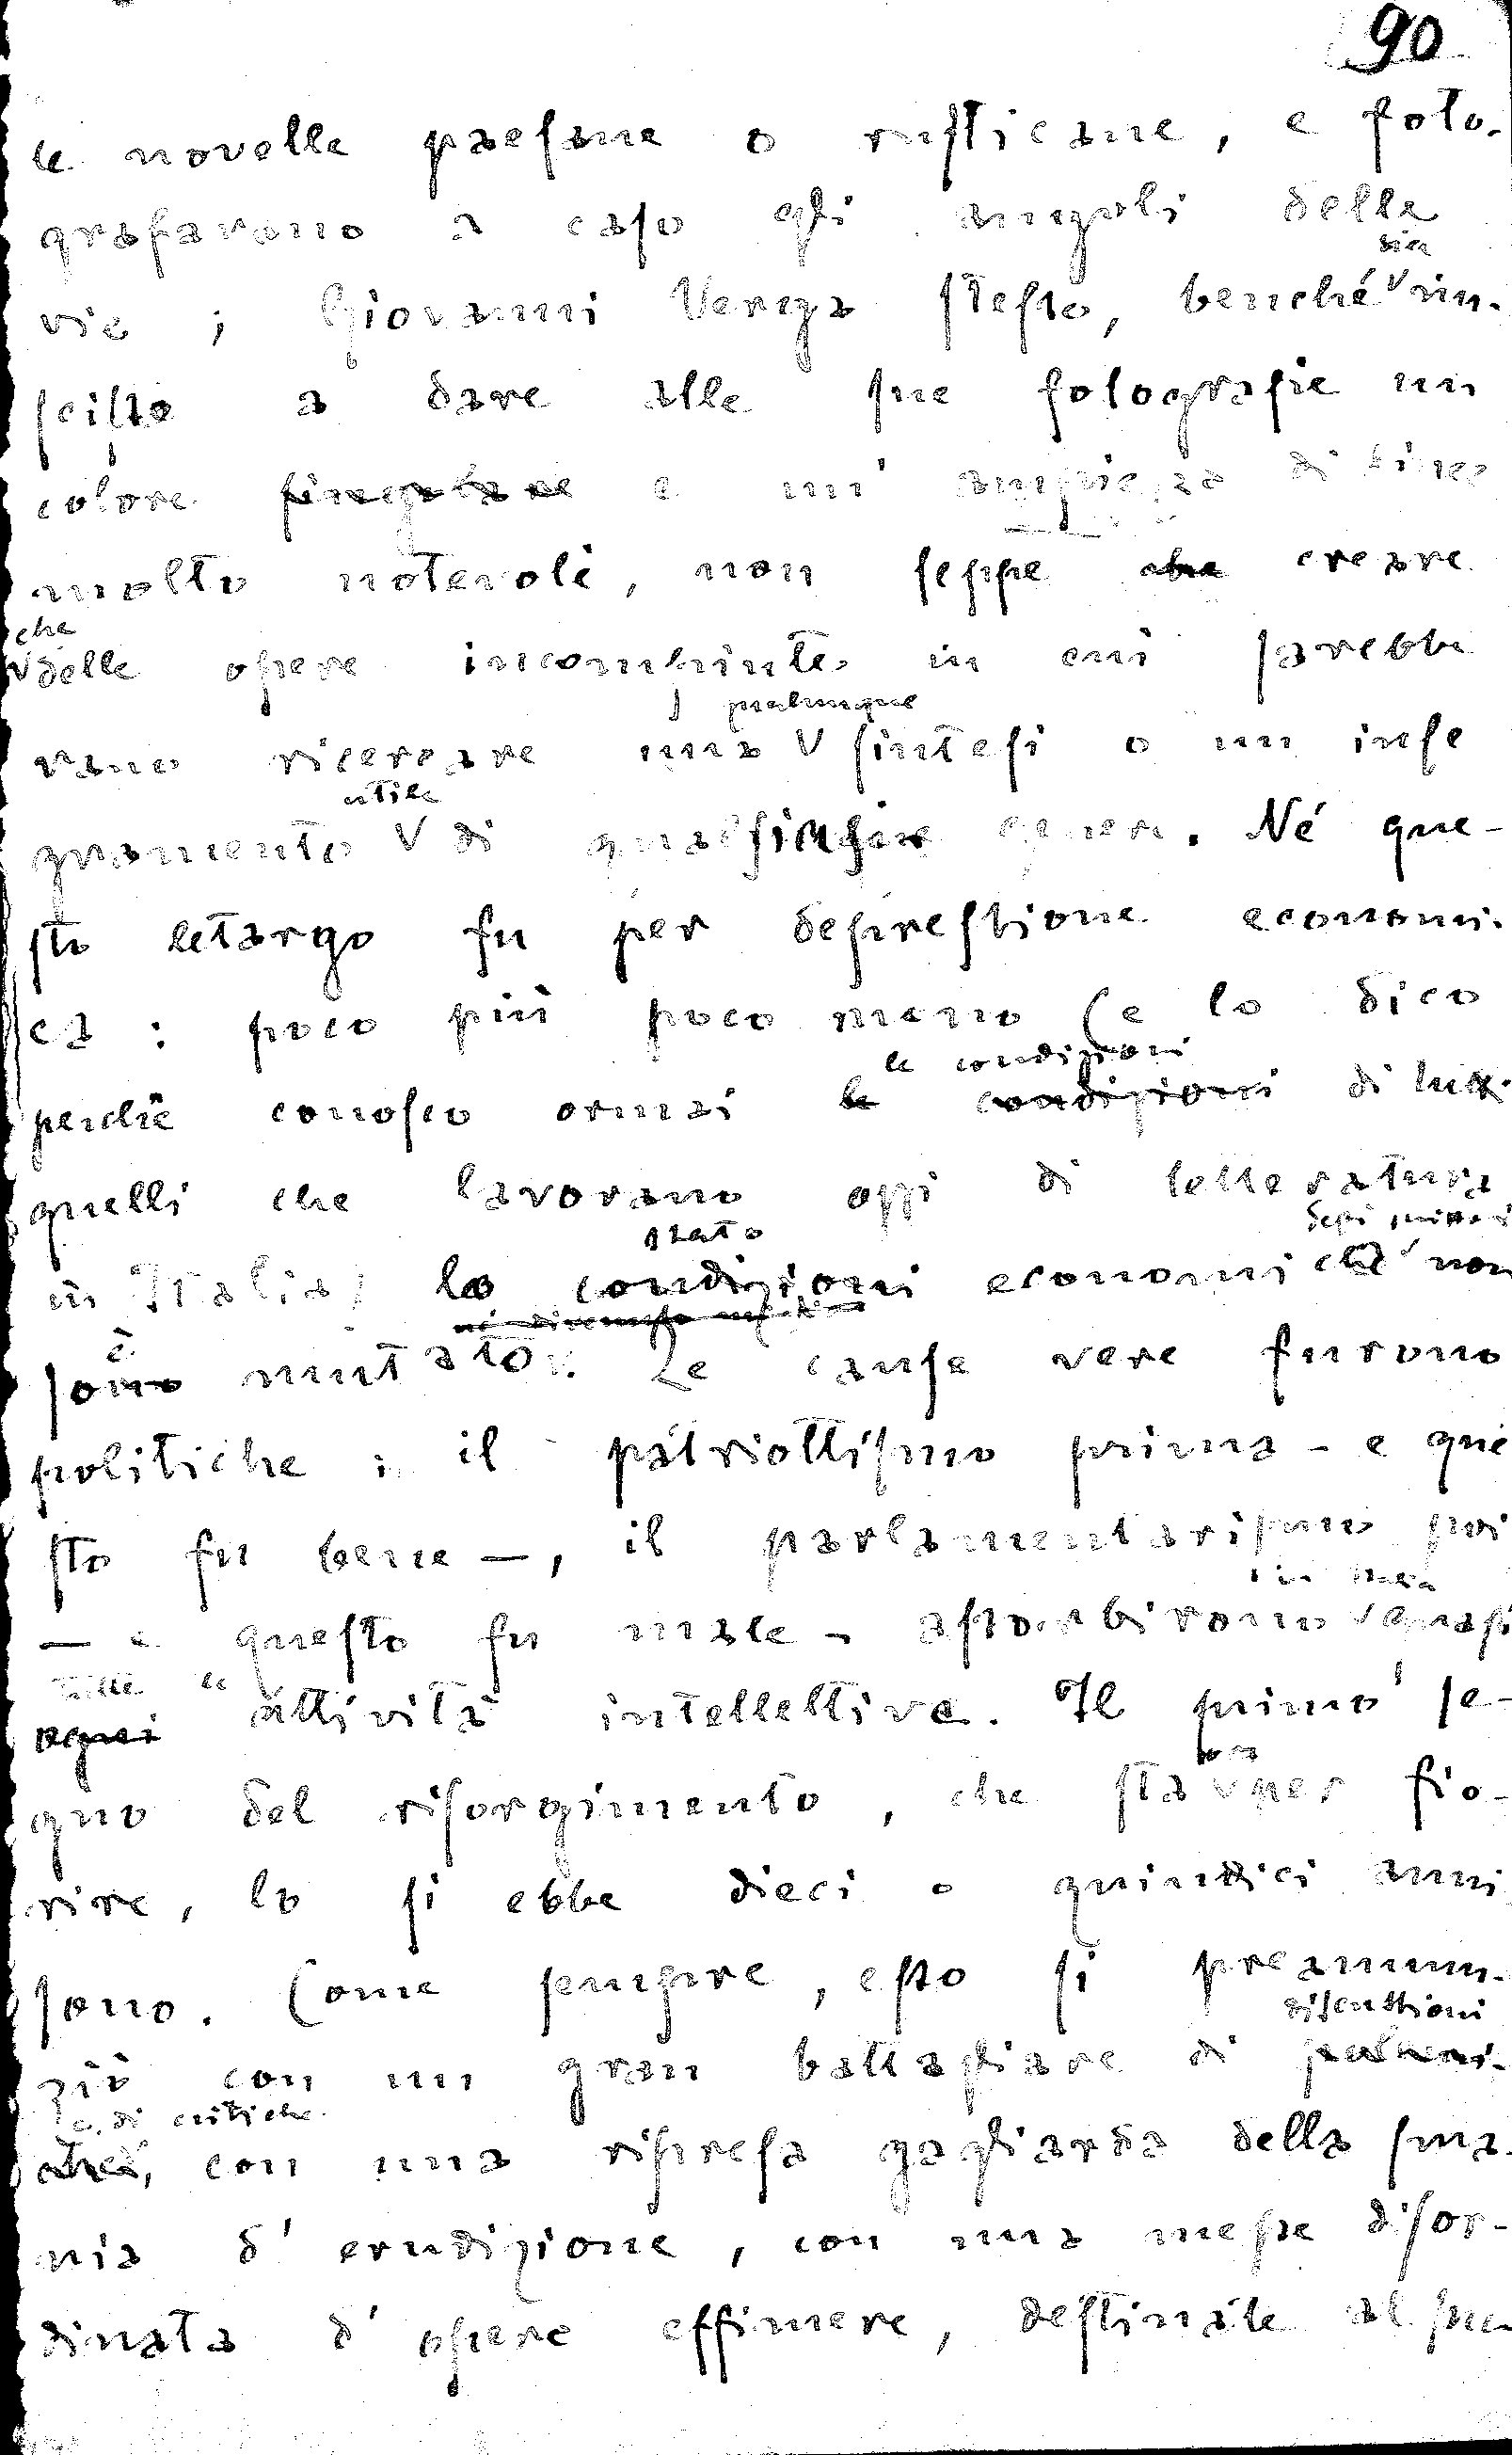 90
le novelle paesane o rusticane, e foto-
grafarono a caso gli angoli delle
sia
vie; Giovanni Verga stesso, benché riu-
scisto a dare alle sue fotografie un
colore singolare e un' ampiezza di linee
molto notevoli, non seppe che creare
che
delle opere incompiute in cui sarebbe
qualunque
vano ricercare una sintesi o un inse
utile
gnamento di qualsisia genere. Né que-
sto letargo fu per depressione economi-
ca: poco più poco meno (e lo dico
le condizioni
perchè conosco ormai le condizioni di tutti
quelli che lavorano oggi di letteratura
stato degli scrittori
in Italia) lo condizioni economiche non
è
sono mutato. Le cause vere furono
politiche: il patriottismo prima - e que
sto fu bene -, il parlamentarismo poi
in Italia
- e questo fu male - assorbirono quasi
tutte le
ogni attività intellettive. Il primo se-
ora
gno del risorgimento, che sta per fio-
rire, lo si ebbe dieci o quindici anni
sono. Come sempre, esso si preannun-
discussioni
ziò con un gran battagliare di polemi-
e di critiche
che, con una ripresa gagliarda della sma-
nia d' erudizione, con una messe disor-
dinata d' opere effimere, destinate al